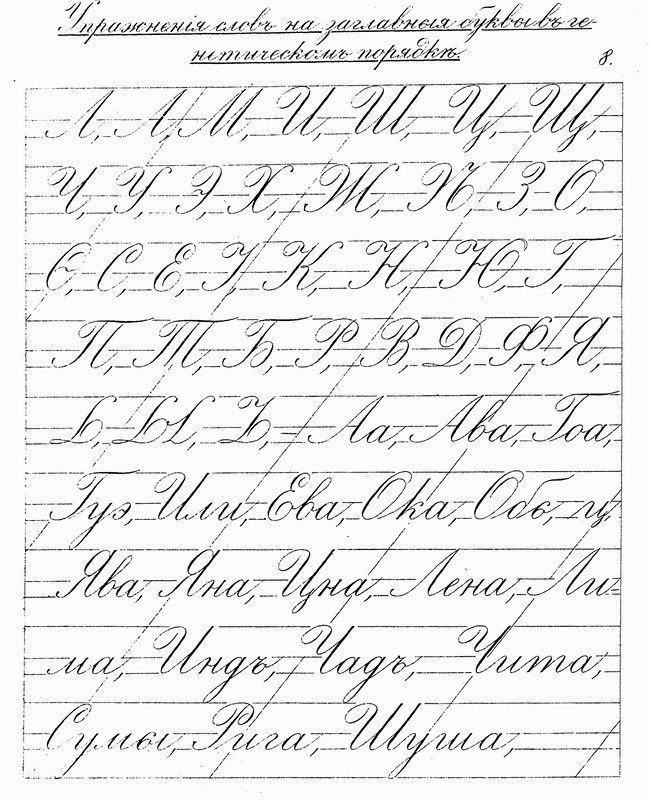 Упражненія словъ на заглавныя буквы въ ге-
нетическомъ порядкѣ.
8.
Л, А, М, И, Ш, Ц, Щ,
Ч, У, Э, Х, Ж, З, О,
Ѳ, С, Е, І, К, Н, Ю, Г,
П, Т, Б, Р, В, Д, Ф, Я,
Ь, Ы, Ъ, – Аа, Ава, Гоа,
Гуэ, Или, Ева, Ока, Обь,
Ява, Яна, Цна, Лена, Ли-
ма, Индъ, Чадъ, Чита,
Сумы, Рига, Шуша,